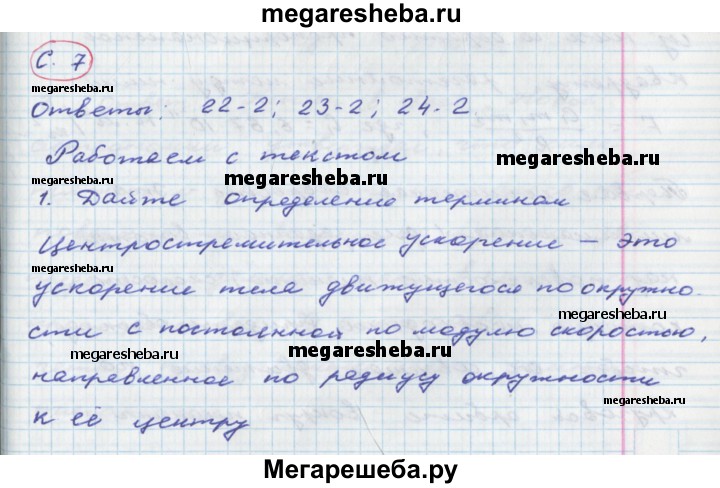 megaresheba.ru
С. 7
megaresheba.ru
Ответы: 22-2; 23-2; 24-2
megaresheba.ru
Работаем с текстом
megaresheba.ru
megaresheba.ru
megaresheba.ru
1. Дайте определение терминам
Центростремительное ускорение – это
megaresheba.ru
ускорение тела движущегося по окружно-
megaresheba.ru
сти с постоянной по модулю скоростью,
megaresheba.ru
megaresheba.ru
направленное по радиусу окружности
megaresheba.ru
к её центру
Мегарешеба.ру